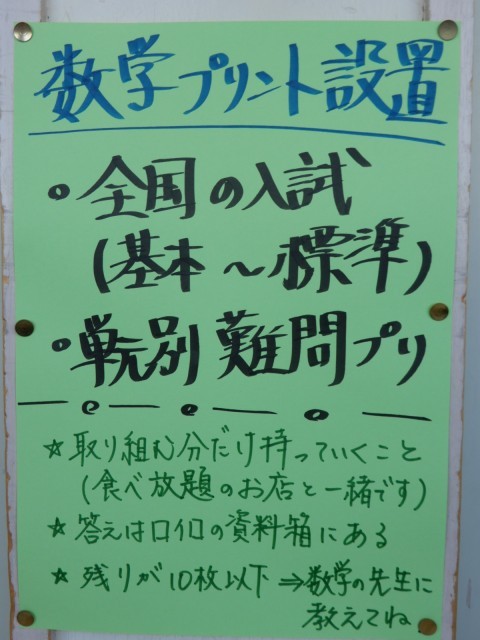 数学プリント設置
・全国の入試
(基本〜標準)
・単元別難問プリ
☆取り組む分だけ持っていくこと
(食べ放題のお店と一緒です)
☆答えはロイロの資料箱にある
☆残りが10枚以下⇒数学の先生に
教えてね